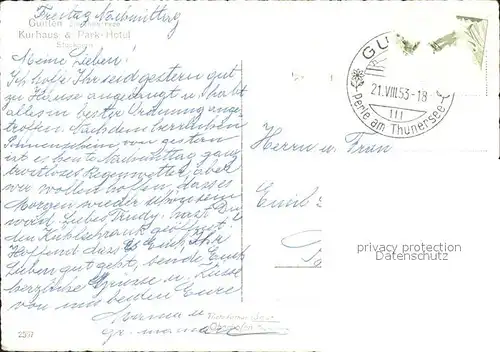 Freitag Nachmittag
Gunten
Kurhaus & Park-Hotel
Meine Lieben!
Ich hoffe Ihr seid gestern gut
zu Hause angelangt u. habt
alles in bester Ordnung ange-
troffen. Nach dem herrlichen
Sonnenschein von gestern
ist es heute Nachmittag ganz
trostloses Regenwetter, aber
wir wollen hoffen, dass es
Morgen wieder schön sein
wird. Liebes Trudy, hast Du
den Kühlschrank geöffnet?
Hoffend dass es Euch, Ihr
Lieben gut geht, sende Euch
herzliche Grüsse u. Küsse
von uns beiden Eure
Mama u.
Gr.mama
2597
GU
21.VIII.53-18
Perle am Thunersee
Herrn u. Frau
Emil
privacy protection
Datenschutz